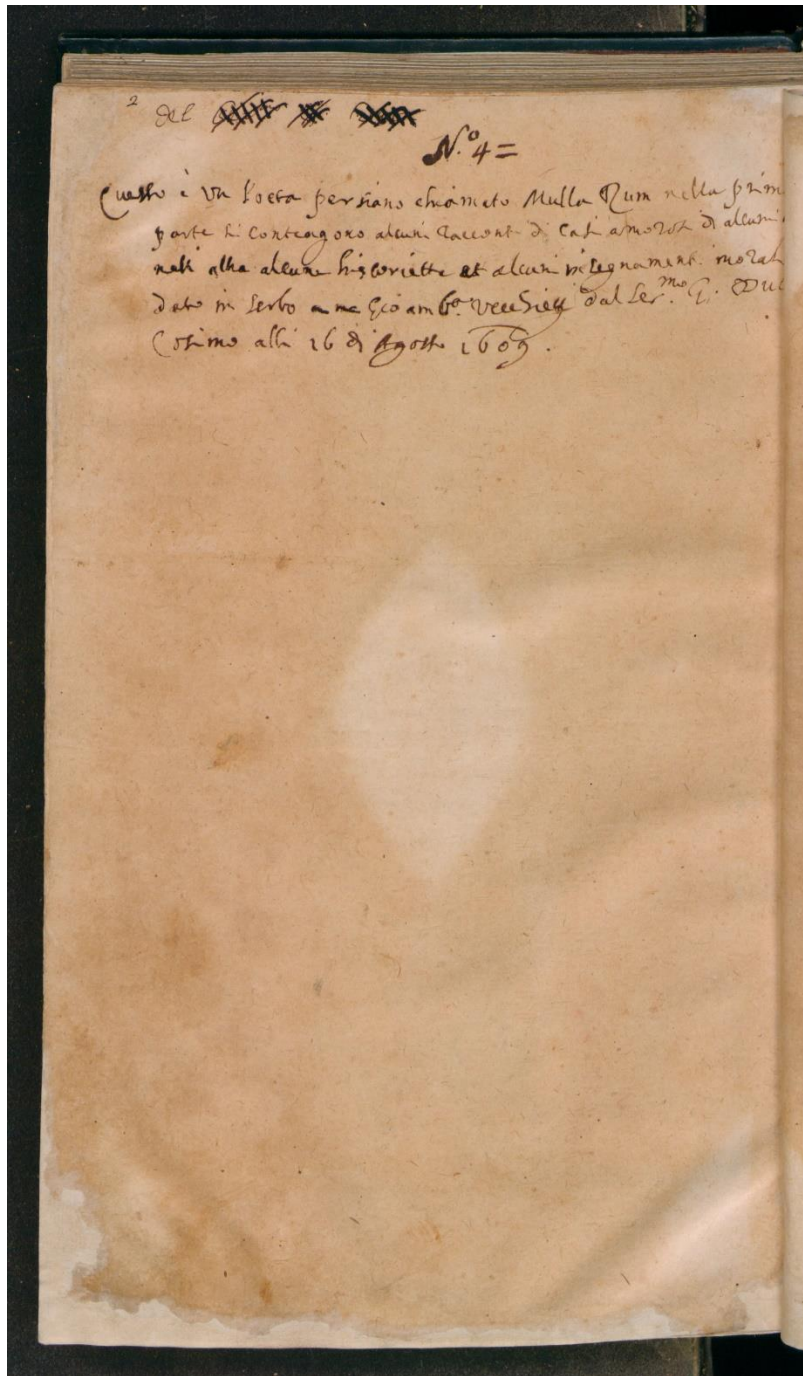 2 del
N.o 4=
Questo è un Poeta persiano chiamato Mulla Rum nella prim
parte si contengono alcuni racconti di casi amorosi di alcuni
nell altra alcune historiette et alcuni insegnamenti moral
dato in serbo a me Gioamb.a Vecchietti dal Ser.mo G. Du
Cosimo alli 16 di Agosto 1609.